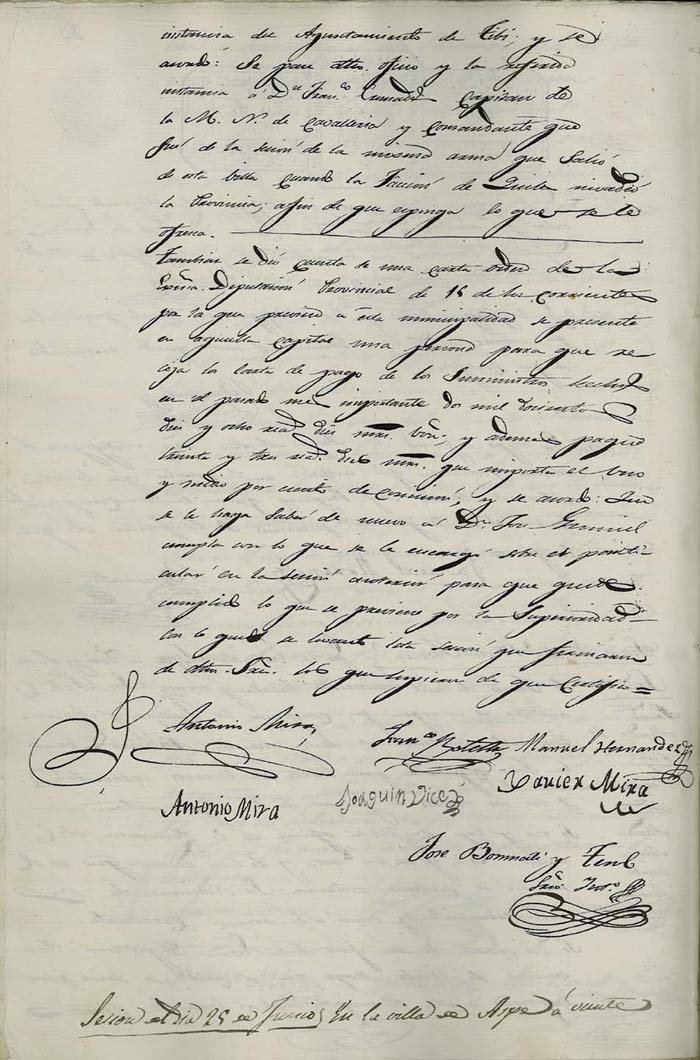 instancia del Ayuntamiento de Tibi; y se
acordó: Se pase dho. oficio y la referida
instancia á Dn. Franco. Capitan de
la M. N. de Cavalleria y Comandante que
fué de la sección de la misma arma que Salió
de esta villa cuando la Facción de Quilez invadió
la Provincia; afin de que esponga lo que se le
ofresca.
Tambien se dió cuenta de una carta orden de la
Exma. Diputación Provincial de 15 de los corrientes
por la que previene á esta municipalidad se presente
en aquella capital una persona para que re-
coja la carta de pago de los Suministros hechos
en el pasado mes importante dos mil docientos
diez y ocho rea.s diez mrs. von. y ademas pague
treinta y tres rea.s diez mrs. que importa el uno
y medio por ciento de comición; y se acordó: Que
se le haga saber de nuevo á Dn. José
cumpla con lo que se le encargó sobre el parti-
cular en la sección anterior para que quede
cumplido lo que se previene por la Superioridad
con lo que se levantó esta seción que firmaron
de dhos. Sres. los que supieron de que Certifico =
Antonio Mira,
Franco Botella Manuel Hernandez
Antonio Mira Joaquin Vicedo Xavier Mira
Jose Bonmati y
Srio Into.
Sesion del dia 25 de Junio En la villa de Aspe á veinte